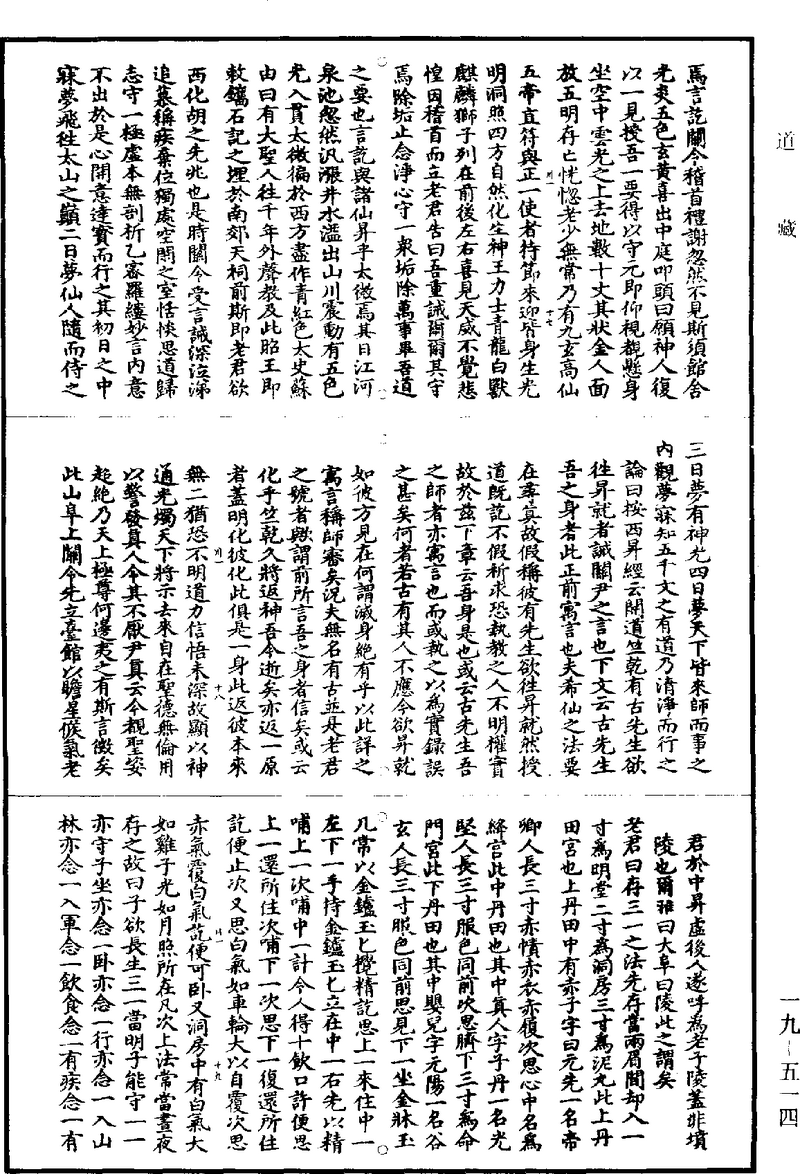 道藏
一九–五一四
焉言訖關令稽首禮謝忽然不見斯須館舍
光爽五色玄黃喜出中庭叩頭曰願神人復
以一見授吾一要得以守元即仰視覩懸身
坐空中雲光之上去地數十丈其狀金人面
放五明存亡恍惚老少無常乃有九玄高仙
五帝直符與正一使者持節來迎脊身生光
明洞照四方自然化生神王力士青龍白獸
麒麟獅子列在前後左右喜見天威不覺悲
惶因稽首而立老君告曰吾重誡爾爾其守
焉除垢止念淨心守一衆垢除萬事畢吾道
之要也言訖與諸仙昇乎太微焉其日江河
泉池忽然汎漲井水溢出山川震動有五色
光入貫太微徧於西方盡作青紅色太史蘇
由曰有大聖人往千年外聲教及此昭王即
敕鐫石記之埋於南郊天祠前斯即老君欲
西化胡之先兆也是時關令受言誡深泣涕
追慕稱疾棄位獨處空閑之室恬惔思道歸
志守一極虛本無剖析乙密羅縷妙言內意
不出於是心開意達實而行之其初日之中
寐夢飛往太山之巔二日夢仙人隨而侍之
三日夢有神光四日夢天下皆來師而事之
內觀夢寐知五千文之有道乃清淨而行之
論曰按西昇經云開道竺乾有古先生欲
往昇就者誠關尹之言也下文云古先生
吾之身者此正前寓言也夫希仙之法要
在尋真故假稱彼有先生欲往昇就然授
道既訖不假祈求恐執教之人不明權實
故於茲下章云吾身是也或云古先生吾
之師者亦寓言也而或執之以為實錄誤
之甚矣何者若古有其人不應今欲昇就
如彼方見在何謂滅身絕有乎以此詳之
寓言稱師審矣況夫無名有古並是老君
之號者歟謂前所言吾之身者信矣或云
化乎竺乾久將返神吾今逝矣亦返一原
者蓋明化彼化此俱是一身此返彼本來
無二猶恐不明道力信悟未深故顯以神
通光燭天下將示去來自在聖德無倫用
以警發真人令其不厭尹真云今覩聖姿
超絕乃天上極尊何邊夷之有斯言徵矣
此山阜上關令先立臺館以瞻星候氣老
君於中昇虛後人遂呼為老子陵蓋非墳
陵也爾雅曰大阜曰陵此之謂矣
老君曰存三一之法先存當兩眉間却入一
寸為明堂二寸為洞房三寸為泥丸此上丹
田宮也上丹田中有赤子字曰元先一名帝
卿人長三寸赤幘赤衣赤履次思心中名為
絳宮此中丹田也其中真人字子丹一名光
堅人長三寸服色同前次思臍下三寸為命
門宮此下丹田也其中嬰兒字元陽一名谷
玄人長三寸服色同前思見下一坐金牀玉
几常以金鑪玉匕攪精訖思上一來住中一
左下一手持金鑪玉匕立在中一右先以精
哺上一次哺中一計令人得十飲口許便思
上一還所住次哺下一次思下一復還所住
訖便止次又思白氣如車輪大以自覆次思
赤氣覆白氣訖便可卧又洞房中有白氣大
如雞子光如月照所在凡次上法常當晝夜
存之故曰子欲長生三一當明子能守一一
亦守子坐亦念一卧亦念一行亦念一入山
林亦念一入軍念一飲食念一有疾念一有